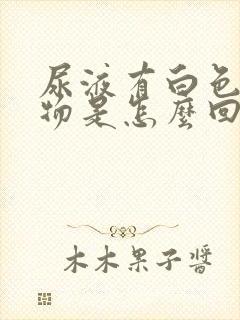 尿液有白色
物是怎麼回
木木果子醬